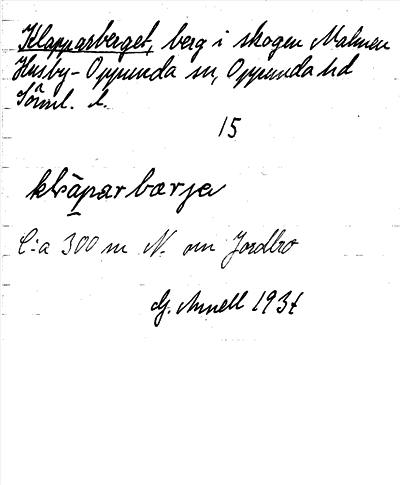 Klapparberget, berg i skogen Malmen
Husby-Oppunda sn, Oppunda hd
Sörml. l.
15
klapar bærja
C:a 300 m N. om Jordbro
G. Annell 1934